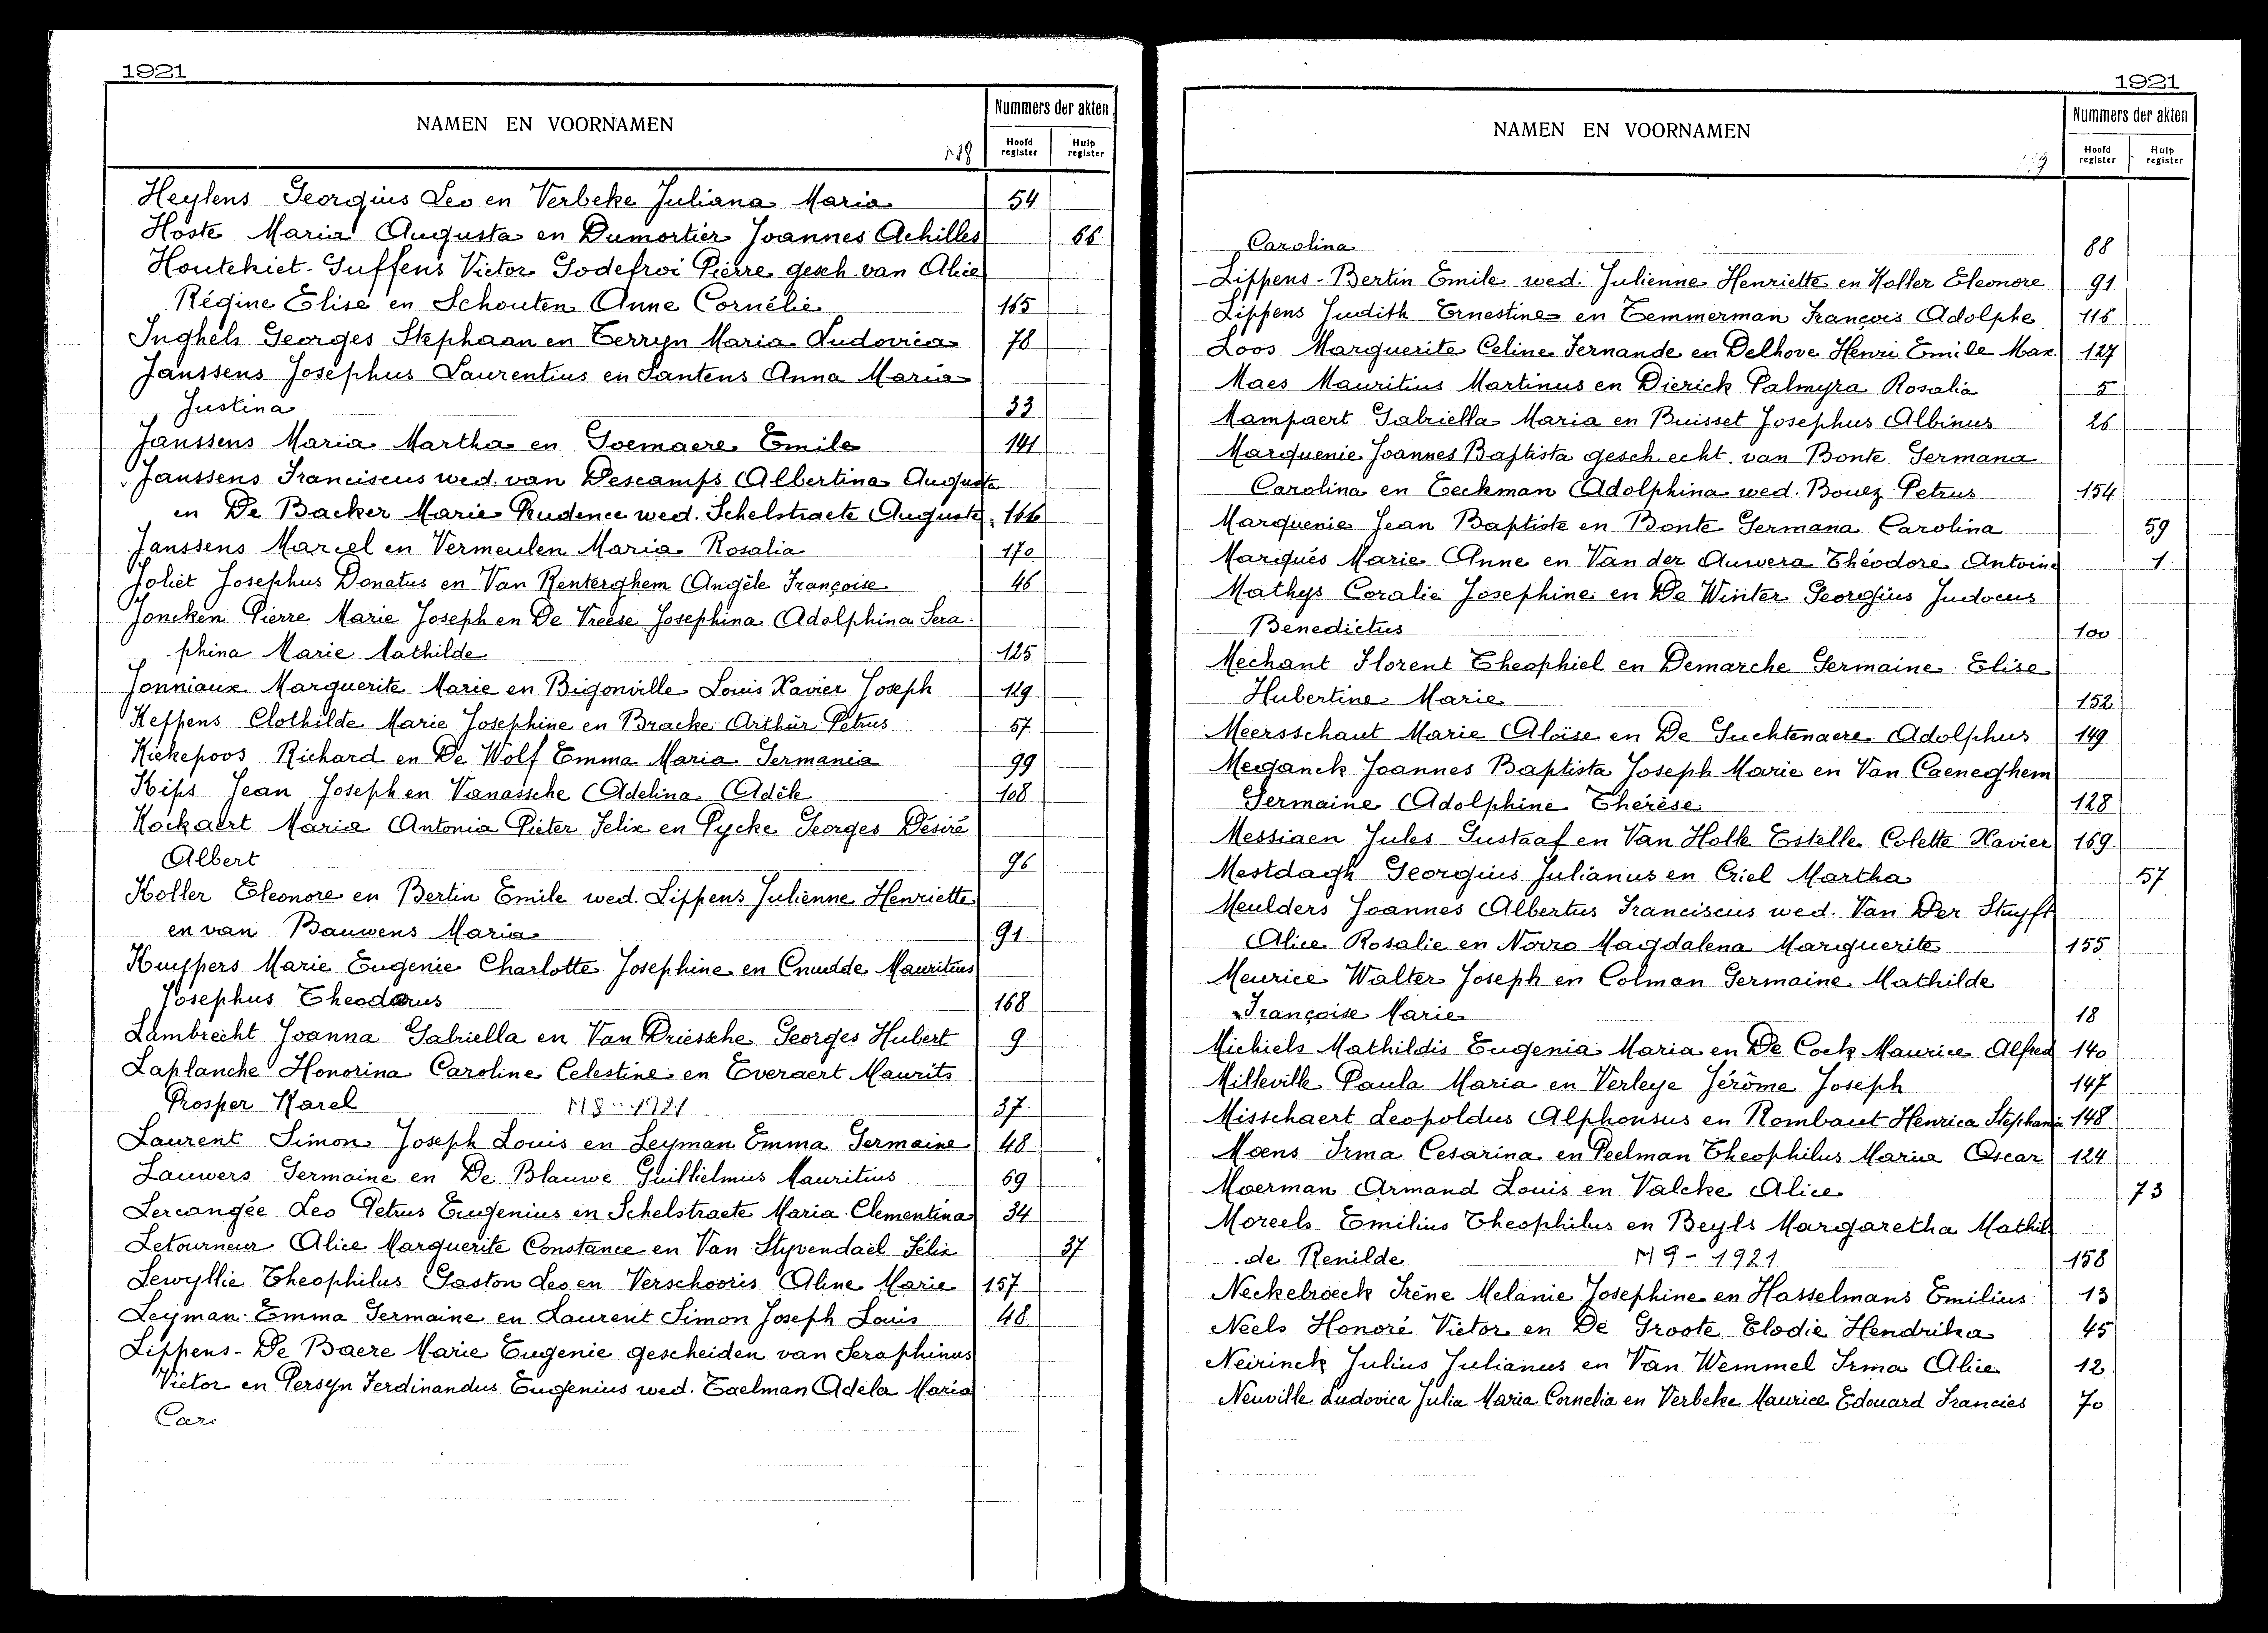 1921
NAMEN EN VOORNAMEN
Nummers der akten
Hoofd register
Hulp register
Heylens Georgius Leo en Verbeke Juliana Maria 54
Hoste Maria Augusta en Dumortier Joannes Achilles 66
Houtekiet-Guffens Victor Godefroi Pierre gesch. van Alice
Régine Elise en Schouten Anne Cornélie 165
Inghels Georges Stephaan en Terryn Maria Ludovica 78
Janssens Josephus Laurentius en Santens Anna Maria
Justina 33
Janssens Maria Martha en Goemaere Emile 141
Janssens Franciscus wed. van Descamps Albertina Augusta
en De Backer Marie Prudence wed. Schelstraete Auguste 166
Janssens Marcel en Vermeulen Maria Rosalia 170
Joliet Josephus Donatus en Van Renterghem Angèle Françoise 46
Joncken Pierre Marie Joseph en De Vreese Josephina Adolphina Sera-
phina Marie Mathilde 125
Jonniaux Marguerite Marie en Bigonville Louis Xavier Joseph 119
Keppens Clothilde Marie Josephine en Bracke Arthur Petrus 57
Kiekepoos Richard en De Wolf Emma Maria Germania 99
Kips Jean Joseph en Vanassche Adelina Adèle 108
Kockaert Maria Antonia Pieter Felix en Pycke Georges Désiré
Albert 96
Koller Eleonore en Bertin Emile wed. Lippens Julienne Henriette
en van Bauwens Maria 91
Kuypers Marie Eugenie Charlotte Josephine en Cnudde Mauritius
Josephus Theodorus 168
Lambrecht Joanna Gabriella en Van Driessche Georges Hubert 9
Laplanche Honorina Caroline Celestine en Everaert Maurits
Prosper Karel M8-1921 37
Laurent Simon Joseph Louis en Leyman Emma Germaine 48
Lauwers Germaine en De Blauwe Guillielmus Mauritius 69
Lercangée Leo Petrus Eugenius en Schelstraete Maria Clementina 34
Letourneur Alice Marguerite Constance en Van Styvendael Felix 37
Lewyllie Theophilus Gaston Leo en Verschooris Aline Marie 157
Leyman Emma Germaine en Laurent Simon Joseph Louis 48
Lippens-De Baere Marie Eugenie gescheiden van Seraphinus
Victor en Persyn Ferdinandus Eugenius wed. Taelman Adela Maria
Car
1921
NAMEN EN VOORNAMEN
Nummers der akten
Hoofd register
Hulp register
Carolina 88
Lippens-Bertin Emile wed. Julienne Henriette en Koller Eleonore 91
Lippens Judith Ernestine en Temmerman François Adolphe 116
Loos Marguerite Celine Fernande en Delhove Henri Emile Max. 127
Maes Mauritius Martinus en Dierick Palmyra Rosalia 5
Mampaert Gabriella Maria en Buisset Josephus Albinus 26
Marquenie Joannes Baptista gesch. echt. van Bonte Germana
Carolina en Eeckman Adolphina wed. Bouez Petrus 154
Marquenie Jean Baptiste en Bonte Germana Carolina 59
Marquès Marie Anne en Van der Auwera Théodore Antoine 1
Mathys Coralie Josephine en De Winter Georgius Judocus
Benedictus 100
Mechant Florent Theophiel en Demarche Germaine Elise
Hubertine Marie 152
Meersschaut Marie Aloïse en De Suchtenaere Adolphus 149
Meganck Joannes Baptista Joseph Marie en Van Caeneghem
Germaine Adolphine Thérèse 128
Messiaen Jules Gustaaf en Van Holle Estelle Colette Xavier 169
Mestdagh Georgius Julianus en Criel Martha 57
Meulders Joannes Albertus Franciscus wed. Van Der Stuyft
Alice Rosalie en Norro Magdalena Marguerite 155
Meurice Walter Joseph en Colman Germaine Mathilde
Françoise Marie 18
Michiels Mathildis Eugenia Maria en De Cock Maurice Alfred 140
Milleville Paula Maria en Verleye Jérôme Joseph 147
Misschaert Leopoldus Alphonsus en Rombaut Henrica Stephania 148
Moens Irma Cesarina en Peelman Theophilus Maria Oscar 124
Moerman Armand Louis en Valcke Alice 73
Moreels Emilius Theophilus en Beyls Margaretha Mathil
de Renilde M9-1921 158
Neckebroeck Irène Melanie Josephine en Hasselmans Emilius 13
Neels Honoré Victor en De Groote Elodie Hendrika 45
Neirinck Julius Julianus en Van Wemmel Irma Alice 12
Neuville Ludovica Julia Maria Cornelia en Verbeke Maurice Edouard Francies 70